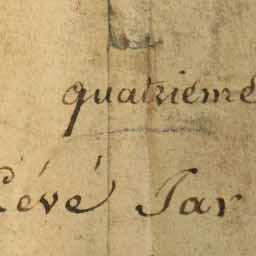 quatriéme
Levé Par